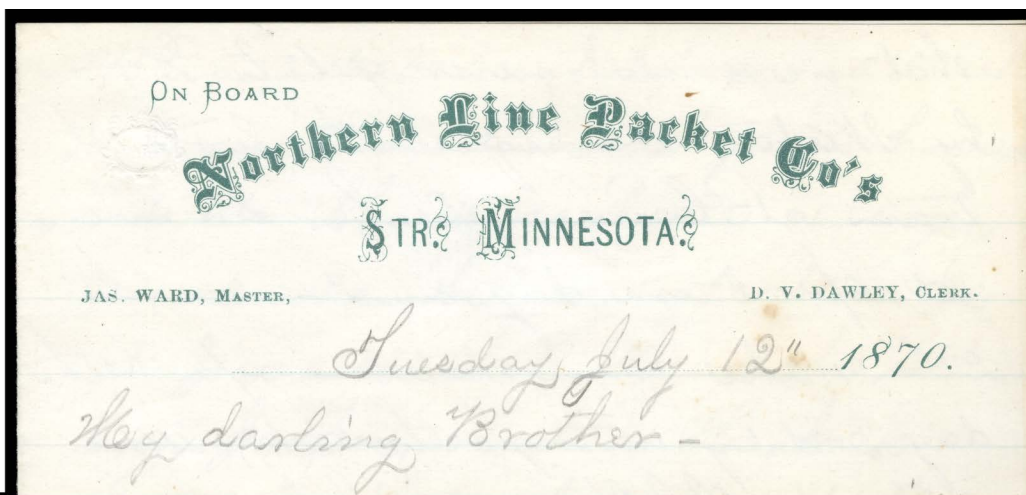 ON BOARD
Northern Line Packet Co's
STR. MINNESOTA.
JAS. WARD, MASTER, D. V. DAWLEY, CLERK.
Tuesday, July 12" 1870.
My darling Brother –